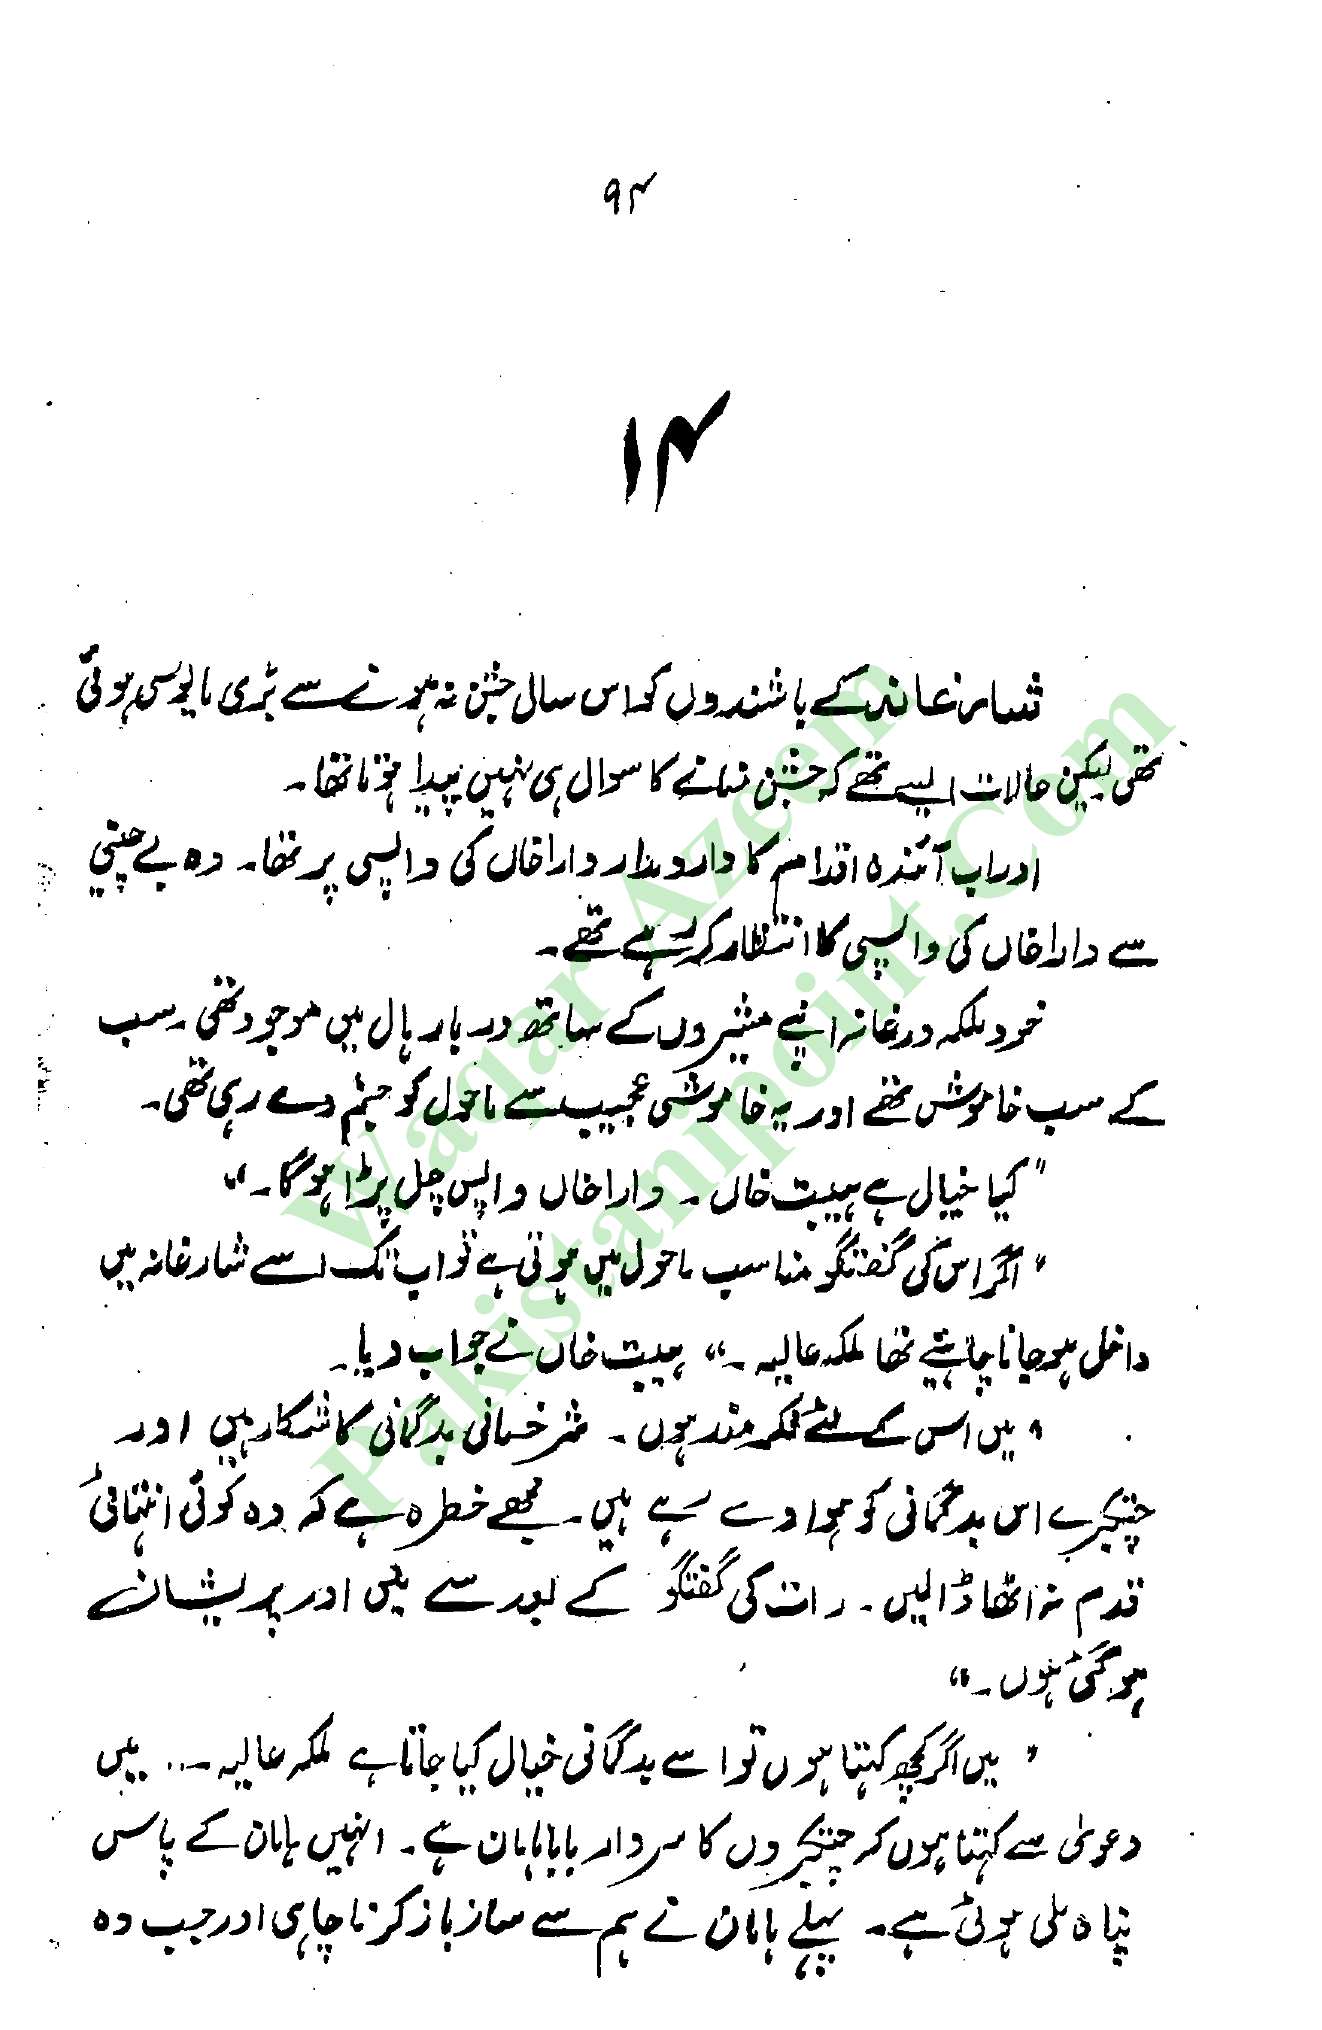 ۹۴
۱۴
شارغانہ کے باشندوں کو اس سال جشن نہ ہونے سے بڑی مایوسی ہوئی
تھی لیکن حالات ایسے تھے کہ جشن منانے کا سوال ہی نہیں پیدا ہوتا تھا۔
اور اب آئندہ اقدام کا دارومدار داراخاں کی واپسی پر تھا۔ وہ بے چینی
سے داراخاں کی واپسی کا انتظار کر رہے تھے۔
خود ملکہ درغانہ اپنے مشیروں کے ساتھ دربار ہال میں موجود تھی۔ سب
کے سب خاموش تھے اور یہ خاموشی عجیب سے ماحول کو جنم دے رہی تھی۔
"کیا خیال ہے ہیبت خاں۔ داراخاں واپس چل پڑا ہوگا۔"
"اگر اس کی گفتگو مناسب ماحول میں ہوتی ہے تو اب تک اسے شارغانہ میں
داخل ہو جانا چاہئیے تھا ملکہ عالیہ۔" ہیبت خاں نے جواب دیا۔
"میں اس کے لئے فکر مند ہوں۔ شرخسانی بدگمانی کا شکار ہیں اور
چتکبرے اس بدگمانی کو ہوا دے رہے ہیں۔ مجھے خطرہ ہے کہ وہ کوئی انتہائی
قدم نہ اٹھا ڈالیں۔ رات کی گفتگو کے بعد سے میں اور پریشان
ہو گئی ہوں۔"
"میں اگر کچھ کہتا ہوں تو اسے بدگمانی خیال کیا جاتا ہے ملکہ عالیہ۔.. میں
دعویٰ سے کہتا ہوں کہ چتکبروں کا سردار بابا ہامان ہے۔ انہیں ہامان کے پاس
پناہ ملی ہوئی ہے۔ پہلے ہامان نے ہم سے ساز باز کرنا چاہی اور جب وہ
Waqar Azeem
Pakistanipoint.Com